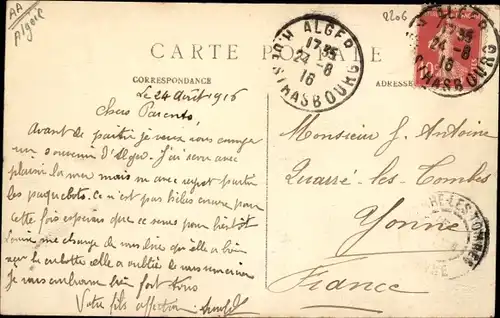 AA
Algérie
2206
CARTE POSTALE
ALGER R. DE STRASBOURG
17 35
24 - 8
16
ALGER
17 35
24 - 8
16
STRASBOURG
10
CORRESPONDANCE
ADRESSE
Le 24 Août 1916
Chers Parents,
Avant de partir je veux vous envoyer
un souvenir d'Alger. J'ai revu avec
plaisir la mer mais m avec regret partir
les paquebots. Ce n'est pas hélas encore pour
cette fois espérons que ce sera pour bientôt
me charge de vous dire qu'elle a bien
reçu la culotte elle a oublié de vous remercier
Je vous embrasse bien fort tous
Votre fils affectionné
Monsieur J. Antoine
Quarré-les-Tombes
Yonne
France
RE-LES-TOMBES